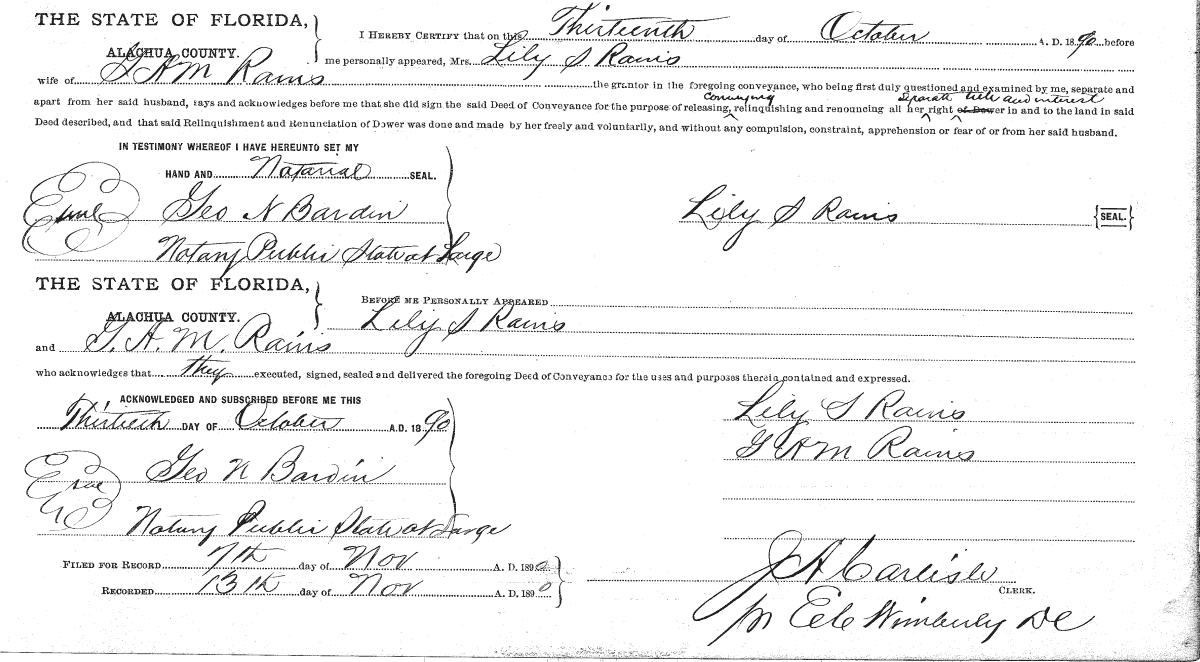 THE STATE OF FLORIDA,
ALACHUA COUNTY.
I HEREBY CERTIFY that on this Thirteenth day of October A. D. 1890 before
me personally appeared, Mrs. Lily S Rains
wife of G A M Rains the grantor in the foregoing conveyance, who being first duly questioned and examined by me, separate and
Conveying Separate title and interest
apart from her said husband, says and acknowledges before me that she did sign the said Deed of Conveyance for the purpose of releasing, relinqdishing and renouncing all her right of Dower in and to the land in said
Deed described, and that said Relinquishment and Renunciation of Dower was done and made by her freely and voluntarily, and without any compulsion, constraint, apprehension or fear of or from her said husband.
IN TESTIMONY WHEREOF I HAVE HEREUNTO SET MY
HAND AND Notarial SEAL.
Geo N Bardin
Lily S Rains {SEAL.}
Notary Public State at Large
THE STATE OF FLORIDA,
ALACHUA COUNTY.
BEFORE ME PERSONALLY APPEARED
Lily S Rains
and G. A. M. Rains
who acknowledges that they executed, signed, sealed and delivered the foregoing Deed of Conveyance for the uses and purposes therein contained and expressed.
ACKNOWLEDGED AND SUBSCRIBED BEFORE ME THIS
Thirtieth DAY OF October A.D. 1890
Lily S Rains
G A M Rains
Geo N Bardin
Notary Public State at Large
FILED FOR RECORD 7th day of Nov A. D. 1890
RECORDED 13th day of Nov A. D. 1890
J A Carlisle
CLERK.
Wimberly DC